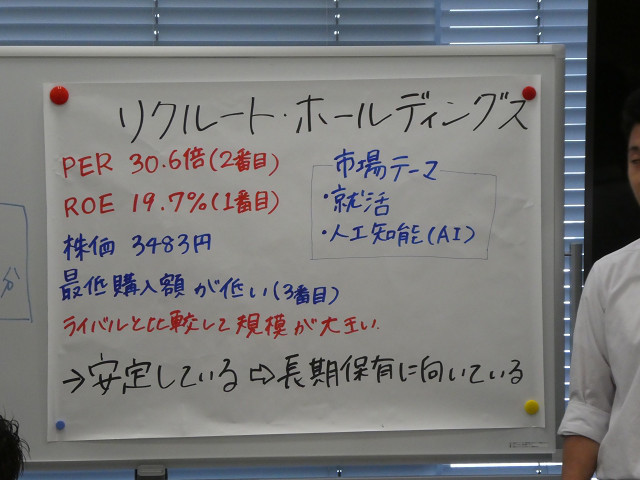 リクルート・ホールディングス
PER 30.6倍(2番目)
ROE 19.7%(1番目)
株価 3483円
最低購入額が低い(3番目)
ライバルと比較して規模が大きい
→安定している⇨長期保有に向いている
市場テーマ
・就活
・人工知能(AI)
分